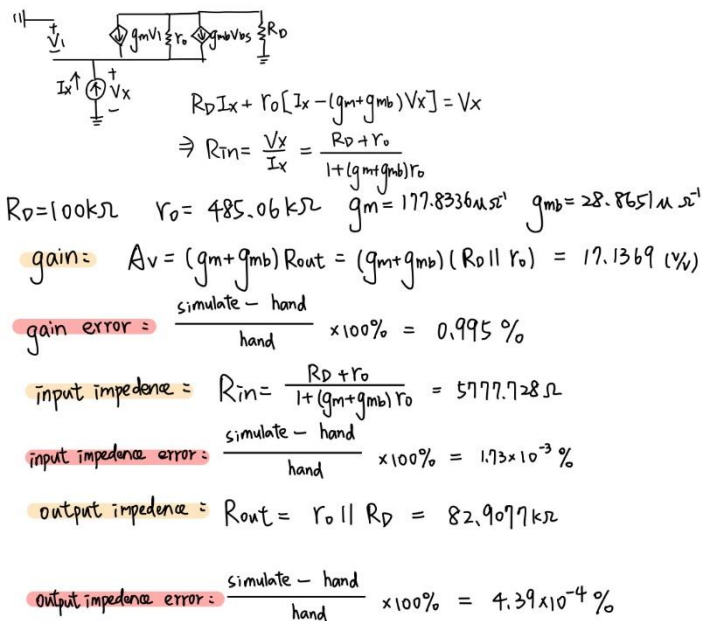 +
V1
−
gmV1
ro
gmbVbs
RD
Ix↑
+
Vx
−
RDIx + ro[Ix−(gm+gmb)Vx] = Vx
⇒ Rin = Vx/Ix = (RD+ro)/(1+(gm+gmb)ro)
RD=100kΩ ro= 485.06kΩ gm= 177.8336μΩ⁻¹ gmb= 28.8651μΩ⁻¹
gain: Av = (gm+gmb) Rout = (gm+gmb)(RD || ro) = 17.1369 (V/V)
gain error: (simulate − hand)/hand ×100% = 0.995 %
input impedence = Rin= (RD+ro)/(1+(gm+gmb)ro) = 5777.728Ω
input impedance error: (simulate − hand)/hand ×100% = 1.73×10⁻³ %
output impedence: Rout = ro || RD = 82.9077kΩ
output impedance error: (simulate − hand)/hand ×100% = 4.39×10⁻⁴ %